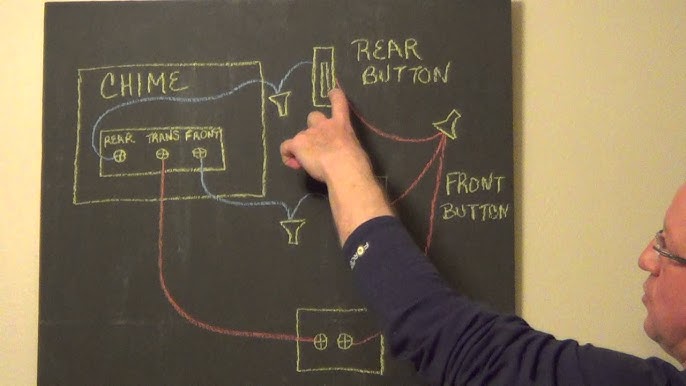 CHIME
REAR TRANS FRONT
REAR
BUTTON
FRONT
BUTTON